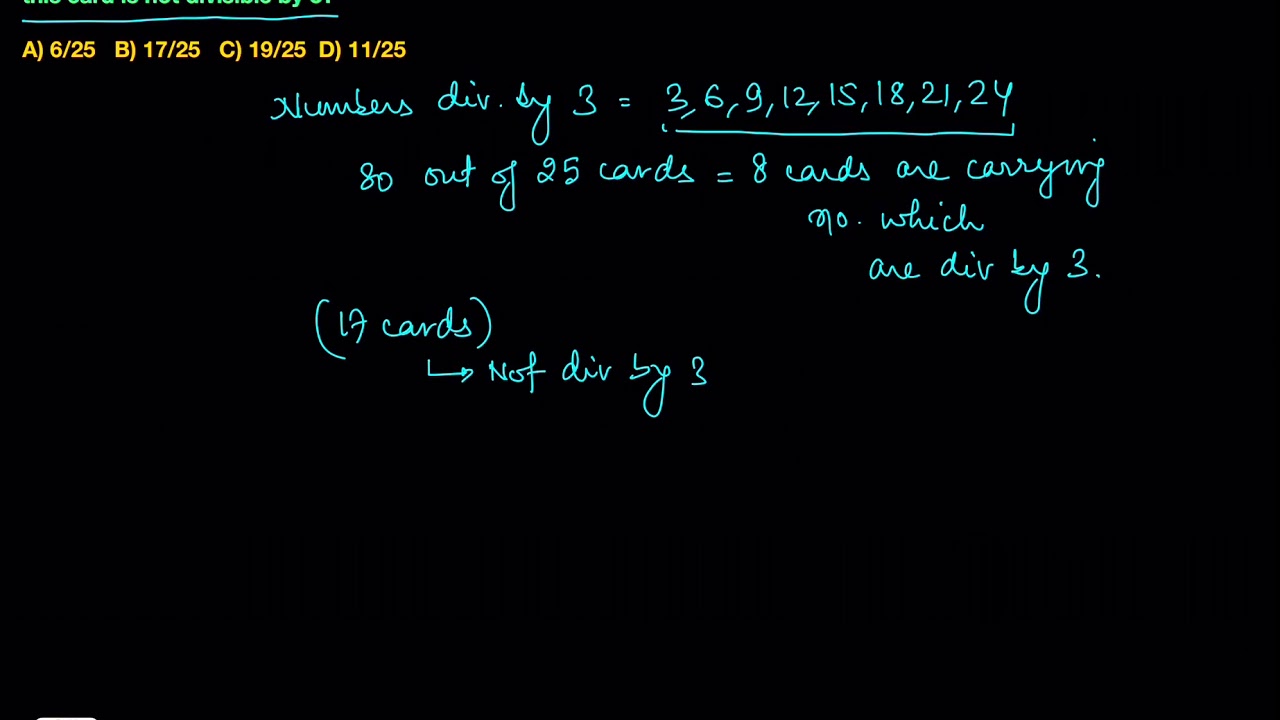 this card is not divisible by 3?
A) 6/25 B) 17/25 C) 19/25 D) 11/25
Numbers div. by 3 = 3, 6, 9, 12, 15, 18, 21, 24
So out of 25 cards = 8 cards are carrying
no. which
are div by 3.
(17 cards)
↳ Not div by 3